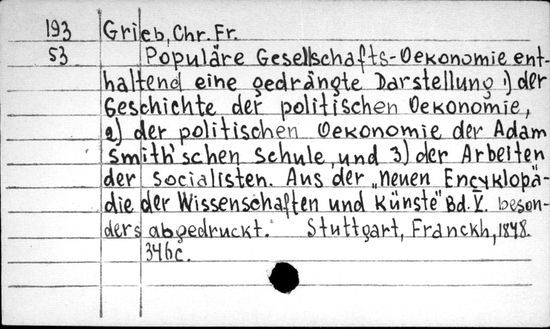 193 Grieb, Chr. Fr.
53 Populäre Gesellschafts-Oekonomie ent-
haltend eine gedrängte Darstellung 1) der
Geschichte der politischen Oekonomie,
2) der politischen Oekonomie der Adam
Smith'schen Schule, und 3) der Arbeiten
der Socialisten. Aus der „neuen Encyklopä-
die der Wissenschaften und Künste" Bd. V. beson-
ders abgedruckt. Stuttgart, Franckh, 1848.
346c.